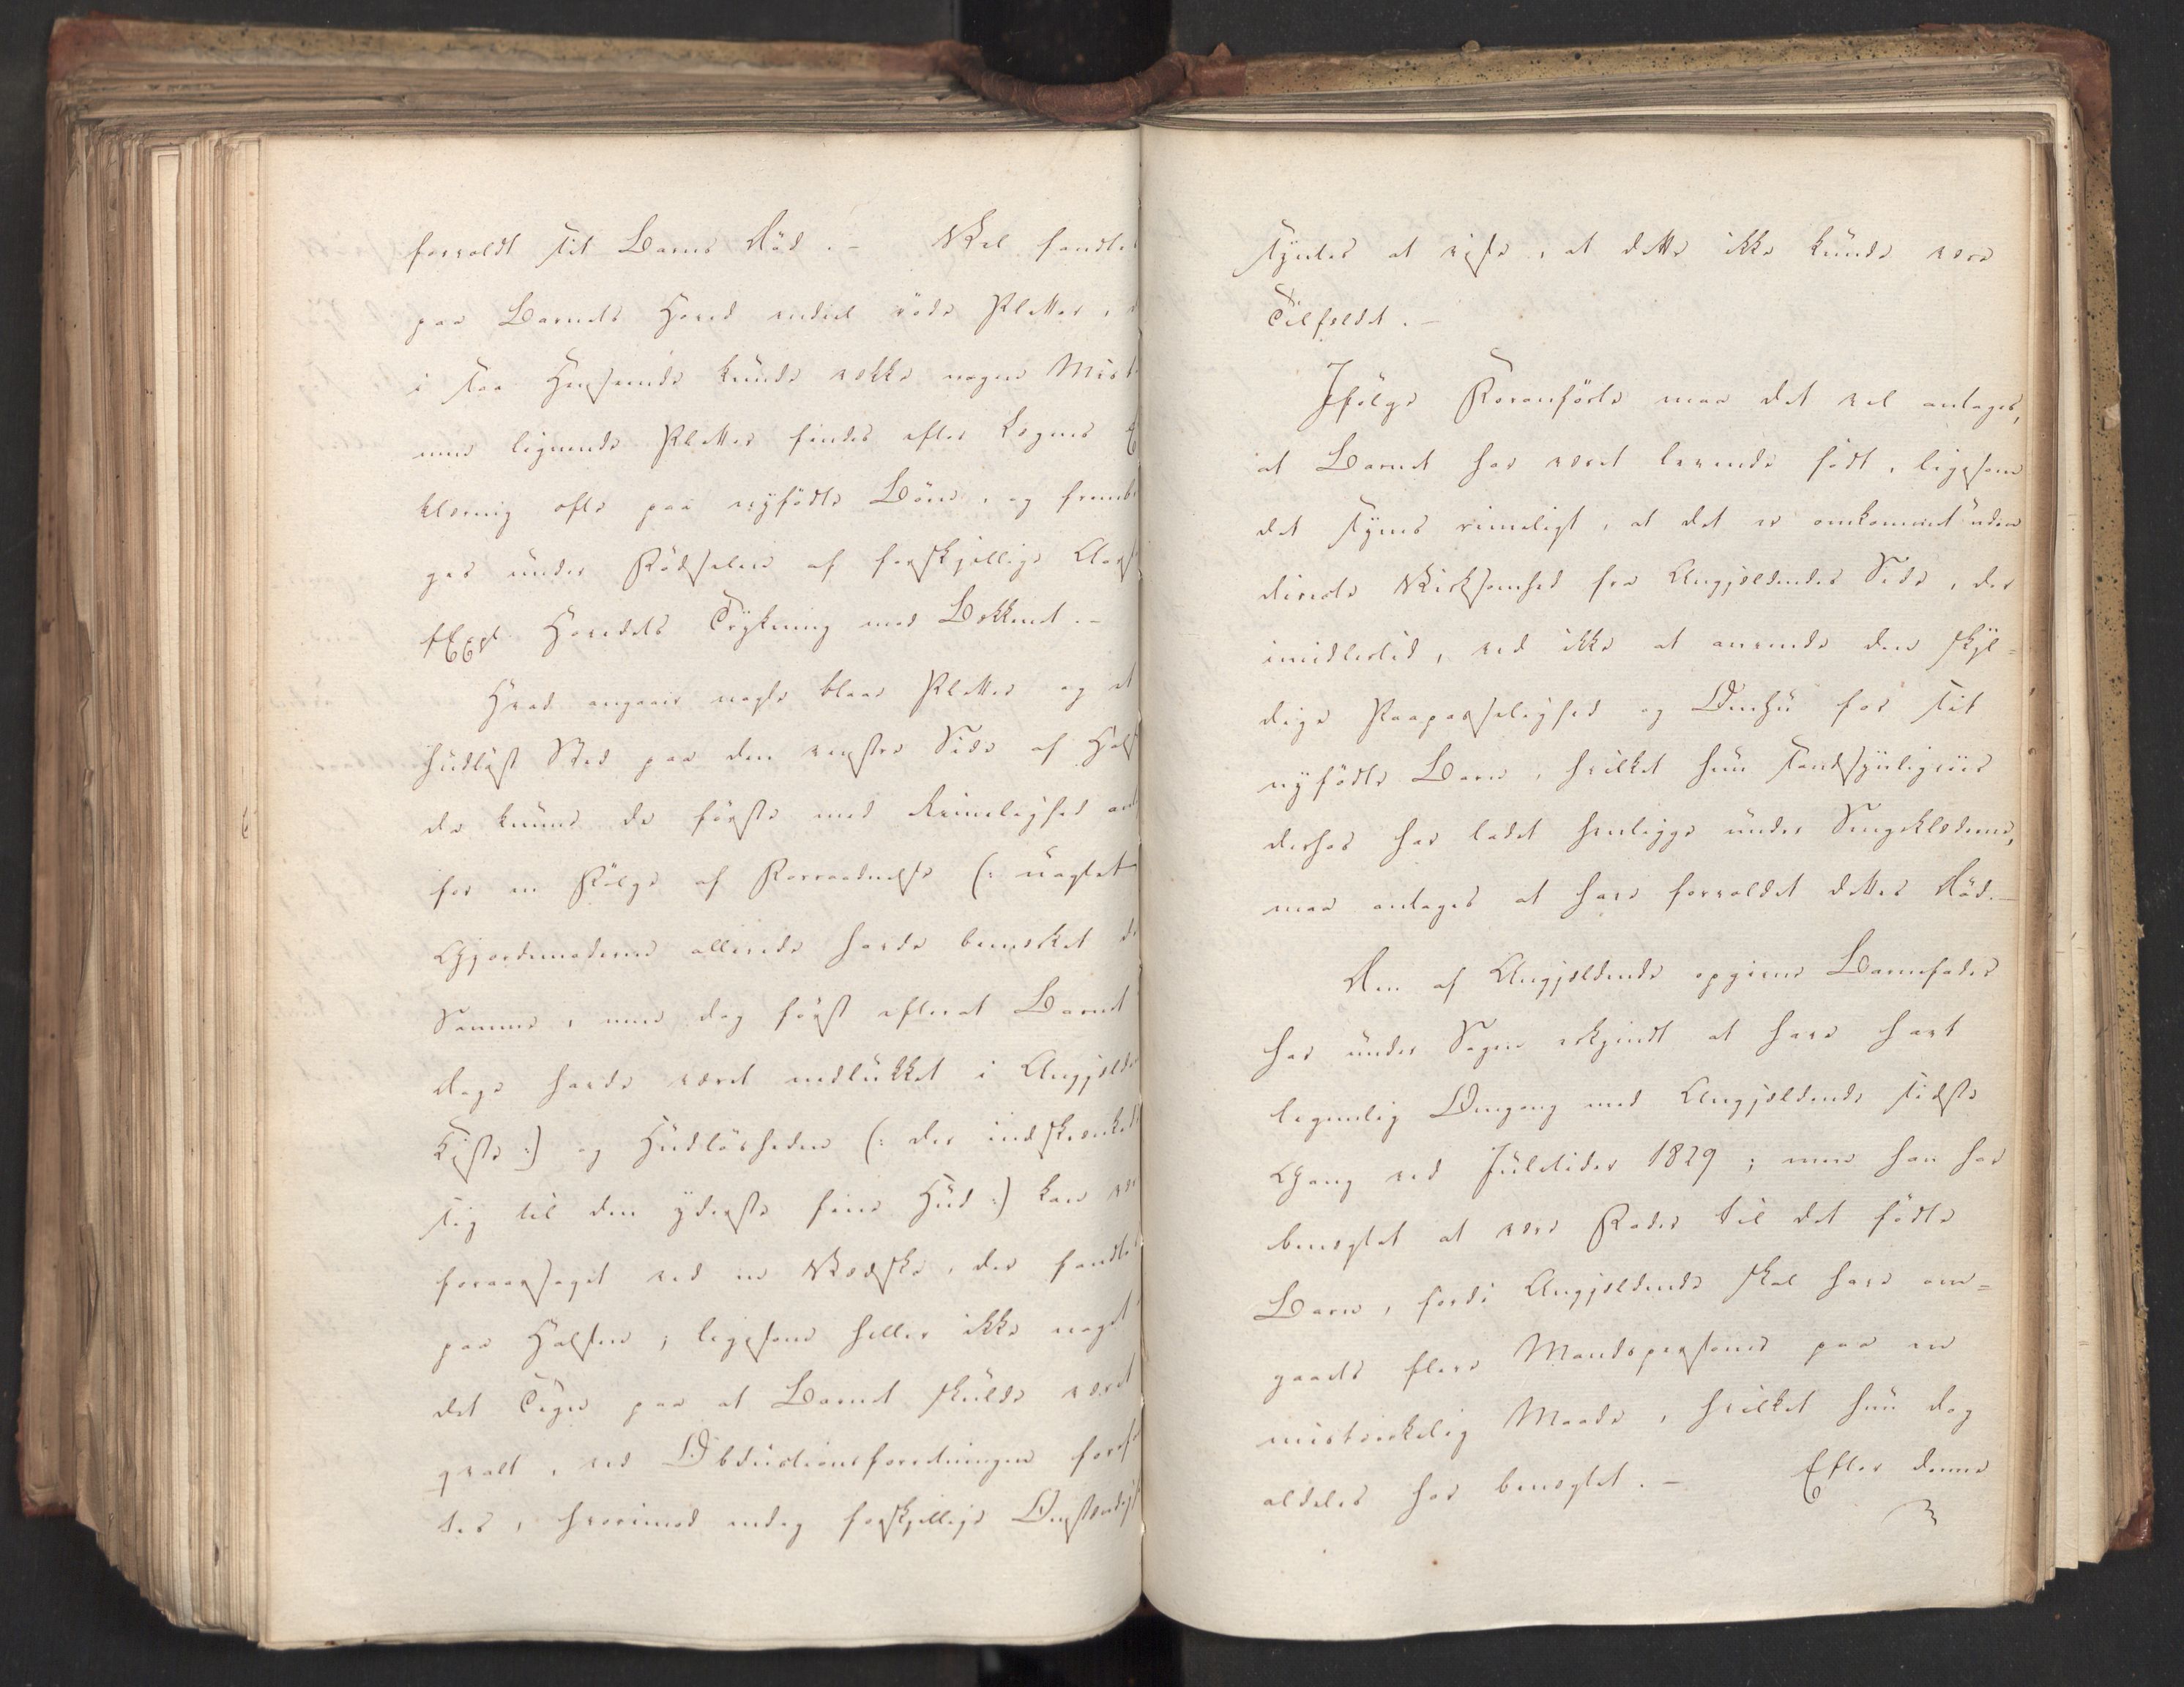 forvoldt sit Barns Død. - Vel fandtes
paa Barnets Hoved endeel røde Pletter,
i saa Henseende kunde vække nogen Mist
men lignende Pletter findes efter Lægens
klæring ofte paa nyfødte Børn, og fremb
ges under Fødselen af forskjellige Aars
f Expl. Hovedets Trykning mod Bækkenet. -
Hvad angaaer nogle blaae Pletter og et
hudløst Sted paa den venstre Side af Hals
da kunne de første med Rimelighed an
for en Følge af Forraadnelse (: uagtet
Gjordemoderen allerede havde bemærket
Samme, men dog først efterat Barnet
Dage havde været nedlukket i Angjelde
Kiste :) og Hudløsheden (: der indskrænkede
sig til den yderste fine Hud :) kan være
foraarsaget ved en Vædske, der fandtes
paa Halsen; ligesom heller ikke noget
det Tegn paa at Barnet skulde været
qvalt, ved Obductionsforretningen foref
tes, hvorimod endog forskjellige Omstændigh
syntes at vise, at dette ikke kunde være
Tilfældet. -
Ifølge Foranførte maa det vel antages,
at Barnet har været levende født, ligesom
det synes rimeligt, at det er omkommet uden
directe Virksomhed fra Angjeldendes Side, der
imidlertid, ved ikke at anvende den skyl=
dige Paapasselighed og Omhu for sit
nyfødte Barn, hvilket hun sandsynligviis
derhos har ladet henligge under Sengeklæderne,
maa antages at have forvoldet dettes Død. -
Den af Angjeldende opgivne Barnefader
har under Sagen erkjendt at have havt
legemlig Omgang med Angjeldende sidste
Gang ved Juletider 1829; men han har
benegtet at være Fader til det fødte
Barn, fordi Angjeldende skal have om=
gaaets flere Mandspersoner paa en
mistænkelig Maade, hvilket hun dog
aldeles har benegtet. - Efter denne